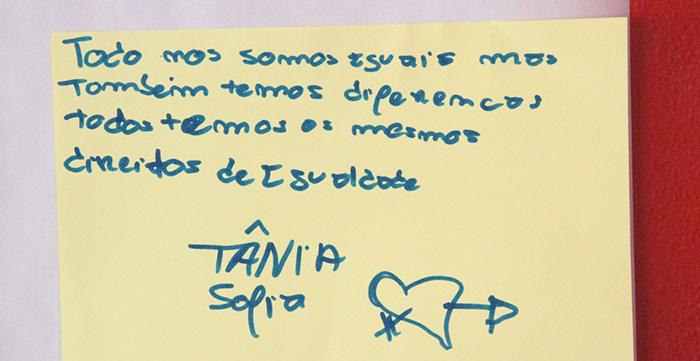 Todo nos somos iguais mas
também temos diferencas
todas temos os mesmos
direitos de Igualdade
TÂNIA
Sofia